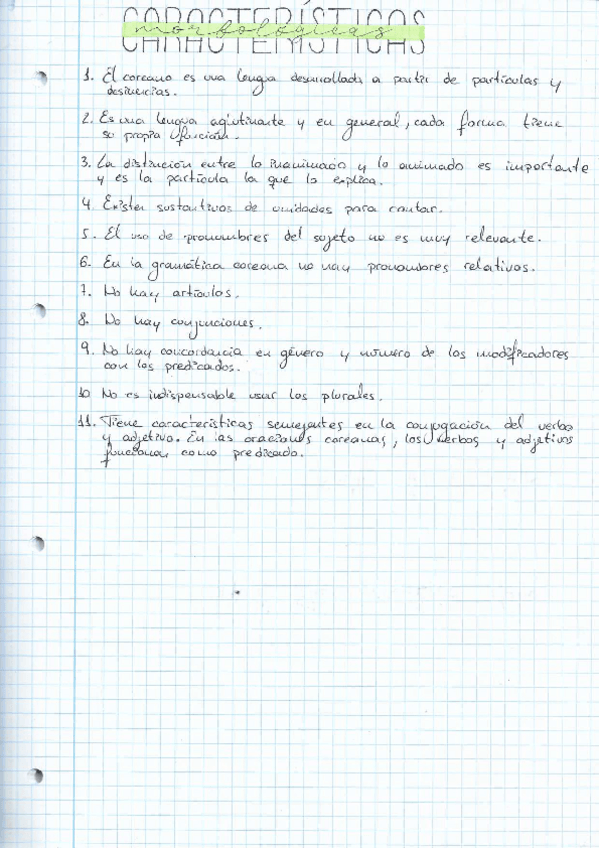 CARACTERÍSTICAS
morfológicas
1. El coreano es una lengua desarrollada a partir de partículas y
desinencias.
2. Es una lengua aglutinante y en general, cada forma tiene
su propia función.
3. La distinción entre lo inanimado y lo animado es importante
y es la partícula la que lo explica.
4. Existen sustantivos de unidades para contar.
5. El uso de pronombres del sujeto no es muy relevante.
6. En la gramática coreana no hay pronombres relativos.
7. No hay artículos.
8. No hay conjunciones.
9. No hay concordancia en género y número de los modificadores
con los predicados.
10 No es indispensable usar los plurales.
11. Tiene características semejantes en la conjugación del verbo
y adjetivo. En las oraciones coreanas, los verbos y adjetivos
funcionan como predicado.